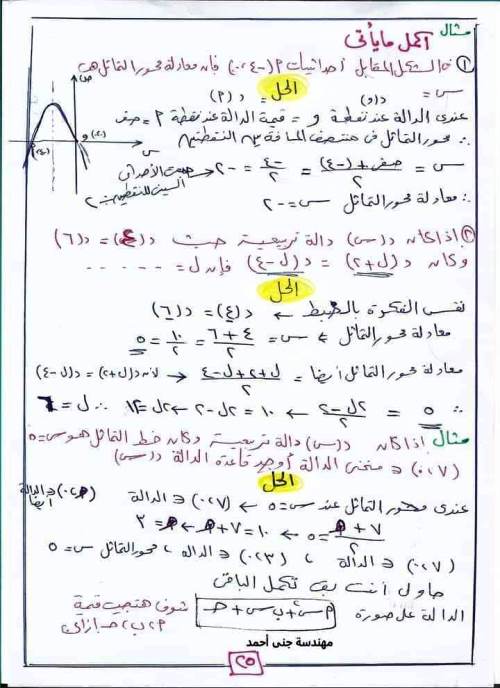 مثال أكمل ما يأتى
① فى الشكل المقابل أحداثيات م (-٤، ٠) فإن معادلة محور التماثل هى
س = 
الحل
د(و) = د(م)
عندى الدالة عند نقطة و = قيمة الدالة عند نقطة م = صفر
∴ محور التماثل فى منتصف المسافة بين النقطتين
س = (صفر + (-٤))/٢ = -٤/٢ = -٢ → جمعت الأحداثى السينى للنقطتين ÷ ٢
∴ معادلة محور التماثل س = -٢
② إذا كان د(س) دالة تربيعية حيث د(٤) = د(٦)
وكان د(ل+٢) = د(ل-٤) فإن ل = ......
الحل
نفس الفكرة بالظبط ← د(٤) = د(٦)
معادلة محور التماثل ← س = (٤+٦)/٢ = ١٠/٢ = ٥
معادلة محور التماثل أيضا = (ل+٢+ل-٤)/٢ → لأن د(ل+٢) = د(ل-٤)
∴ ٥ = (٢ل-٢)/٢ ← ١٠ = ٢ل-٢ ← ٢ل = ١٢ ∴ ل = ٦
مثال إذا كان د(س) دالة تربيعية وكان خط التماثل هو س=٥
(٧، ٢) ∈ منحنى الدالة أوجد قاعدة الدالة د(س)
الحل
عندى محور التماثل عند س=٥ ← (٧، ٢) ∈ الدالة (م، ٢) ∈ الدالة أيضا
(٧+م)/٢ = ٥ ← ١٠ = ٧+م ← م = ٣
(٧، ٢) ∈ الدالة ، (٣، ٢) ∈ الدالة ، محور التماثل س=٥
حاول أنت بقى تكمل الباقى
الدالة على صورة م س² + ب س + جـ شوف هتجيب قيمة م، ب، جـ إزاى
مهندسة جنى أحمد
٢٥